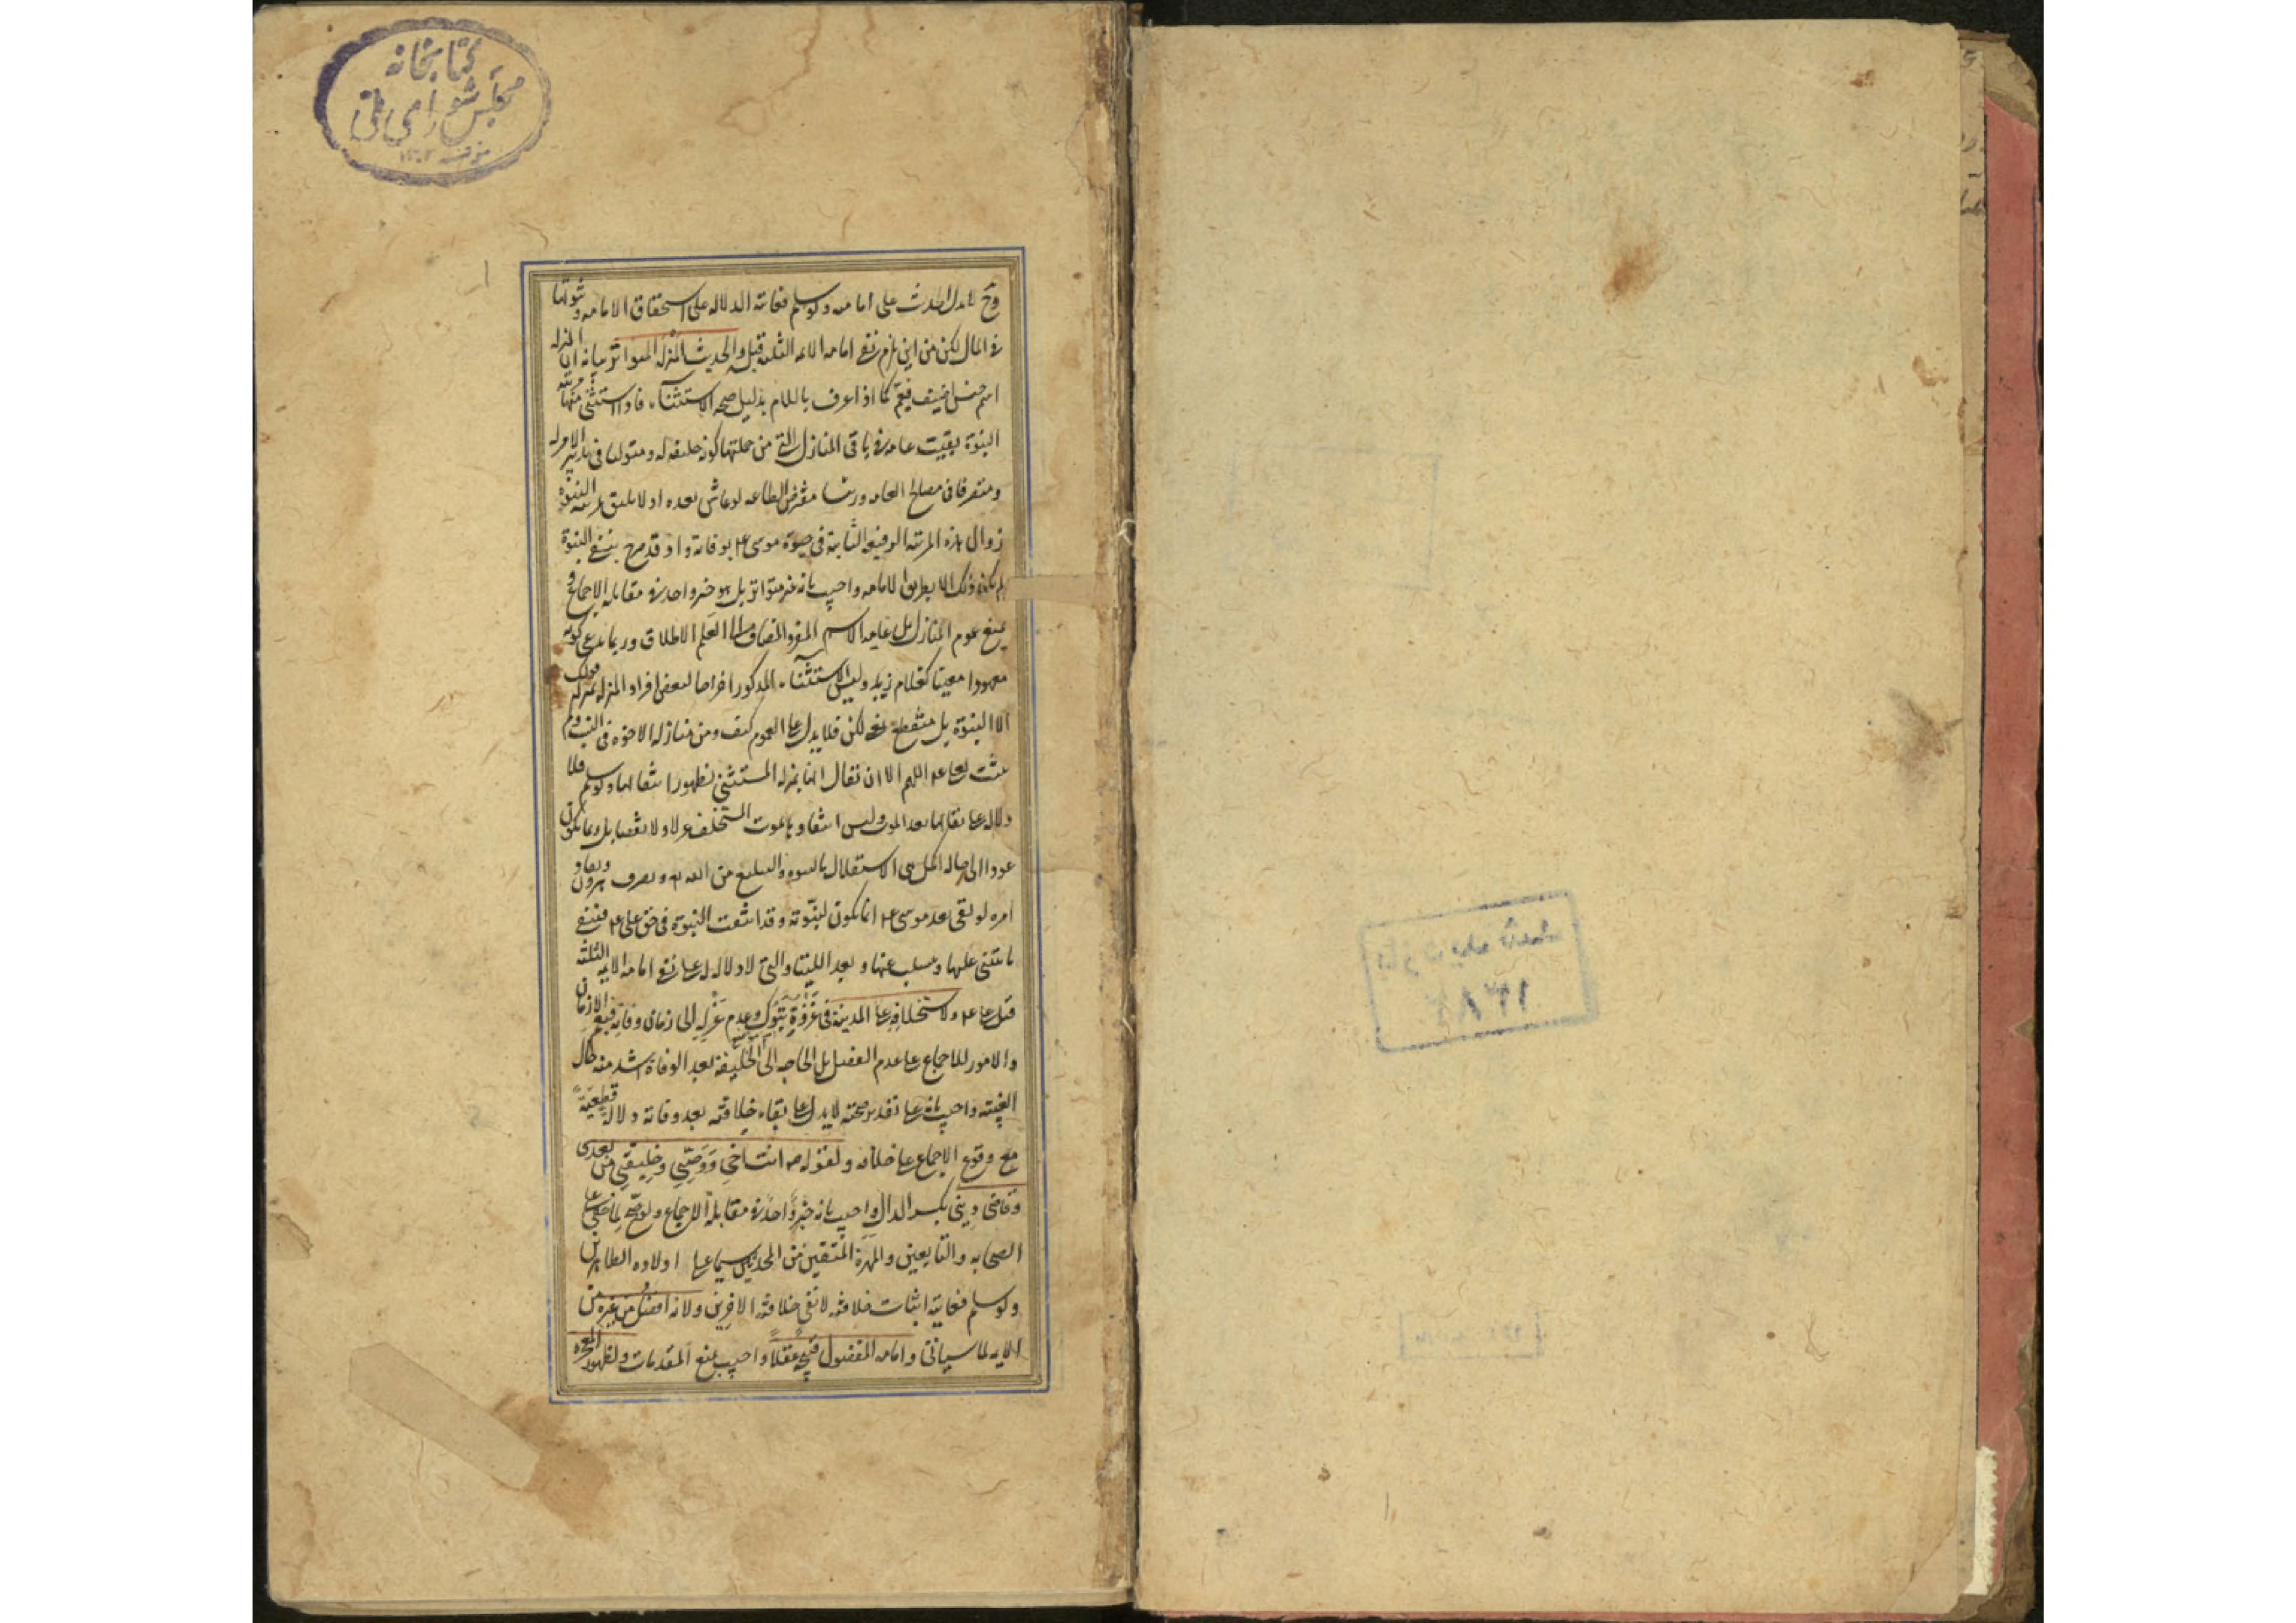 كتابخانه
مجلس شورای ملی
١٣٠٢
١
وح لا يدل الحديث على امامته ولو سلم فغايته الدلاله على استحقاق الامامه وثبوتها
في المآل لكن من اين يلزم نفي امامه الائمه الثلثه قبله ولحديث المنزله المتواتر بيانه ان المنزله
اسم جنس اضيف فيعم كما اذا عرف باللام بدليل صحه الاستثناء فاذا استثنى منها مرتبه
النبوة بقيت عامه في باقى المنازل التى من جملتها كونه خليفه له ومتوليا فى تدبير الامر له
ومتصرفا فى مصالح العامه ورئيسا مفترض الطاعه لو عاش بعده اذ لا يليق بمرتبه النبوة
زوال هذه المرتبه الرفيعه الثابتة فى حيوة موسى ع بوفاته واذ قد صرح بنفى النبوة
لم يكن ذلك الا بطريق الامامه واجيب بانه غير متواتر بل هو خبر واحد في مقابله الاجماع و
بمنع عموم المنازل بل غايه الاسم المفرد المضاف الى العلم الاطلاق وربما يدعى كونه
معهودا معينا كغلام زيد وليس الاستثناء المذكور اخراجا لبعض افراد المنزله بمنزله قولك
الا النبوة بل منقطع بمعنى لكن فلا يدل على العموم كيف ومن منازله الاخوه فى النسب ولم
يثبت لعلى ع اللهم الا ان يقال انها بمنزله المستثنى لظهور انتفائها ولو سلم فلا
دلاله على بقائها بعد الموت وليس انتفاؤها بموت المستخلف عزلا ولا نقصا بل ربما يكون
عودا الى حاله اكمل هى الاستقلال بالنبوه والتبليغ من الله تع وتصرف هرون ونفاذ
امره لو بقى بعد موسى ع انما يكون لنبوته وقد انتفت النبوة فى حق على ع فينتفى
ما يبتنى عليها ويتسبب عنها وبعد اللتيا والتى لا دلاله له على نفى امامه الائمه الثلثه
قبل على ع ولاستخلافه على المدينة فى غزوة تبوك وعدم عزله الى زمان وفاته فيعم الازمان
والامور للاجماع على عدم الفصل بل الحاجه الى الخليفة بعد الوفاة اشد منه حال
الغيبته واجيب بانه على تقدير صحته لا يدل على بقاء خلافته بعد وفاته دلاله قطعية
مع وقوع الاجماع على خلافه ولقوله ص انت اخى ووصيى وخليفتى من بعدى
وقاضى دينى بكسر الدال واجيب بانه خبر واحد في مقابلة الاجماع ولو صح لما خفى على
الصحابه والتابعين والمهرة المتقنين من المحدثين سيما على اولاده الطاهرين
ولو سلم فغايته اثبات خلافته لا نفى خلافة الاخرين ولانه افضل من غيره من
الايه لما سياتى وامامه المفضول قبيحه عقلا واجيب بمنع المقدمات ولظهور المعجزه
١٣٨